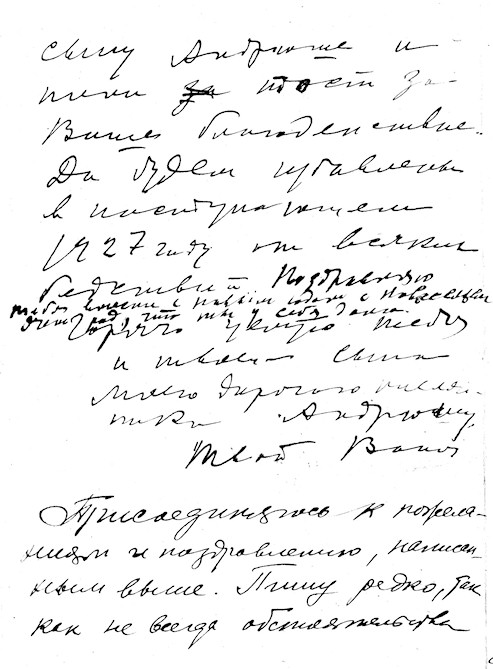 сыну Андрюше и
пьем за тост за
Ваше благоденствие.
Да будем избавлены
в наступающем
1927 году от всяких
бедствий. Поздравляю
тебя вместе с новым годом с новосельем
рад, что ты у себя дома.
Горячо целую тебя
и твоего сына
моего дорогого племян-
ника Андрюшу.
Твой Ваня
Присоединяюсь к пожела-
ниям и поздравлению, написан-
ным выше. Пишу редко, так
как не всегда обстоятельства